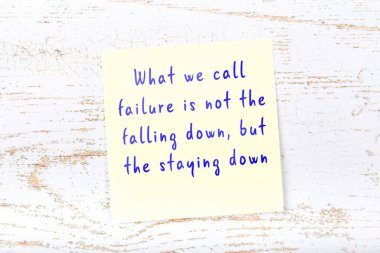 What we call
failure is not the
falling down, but
the staying down